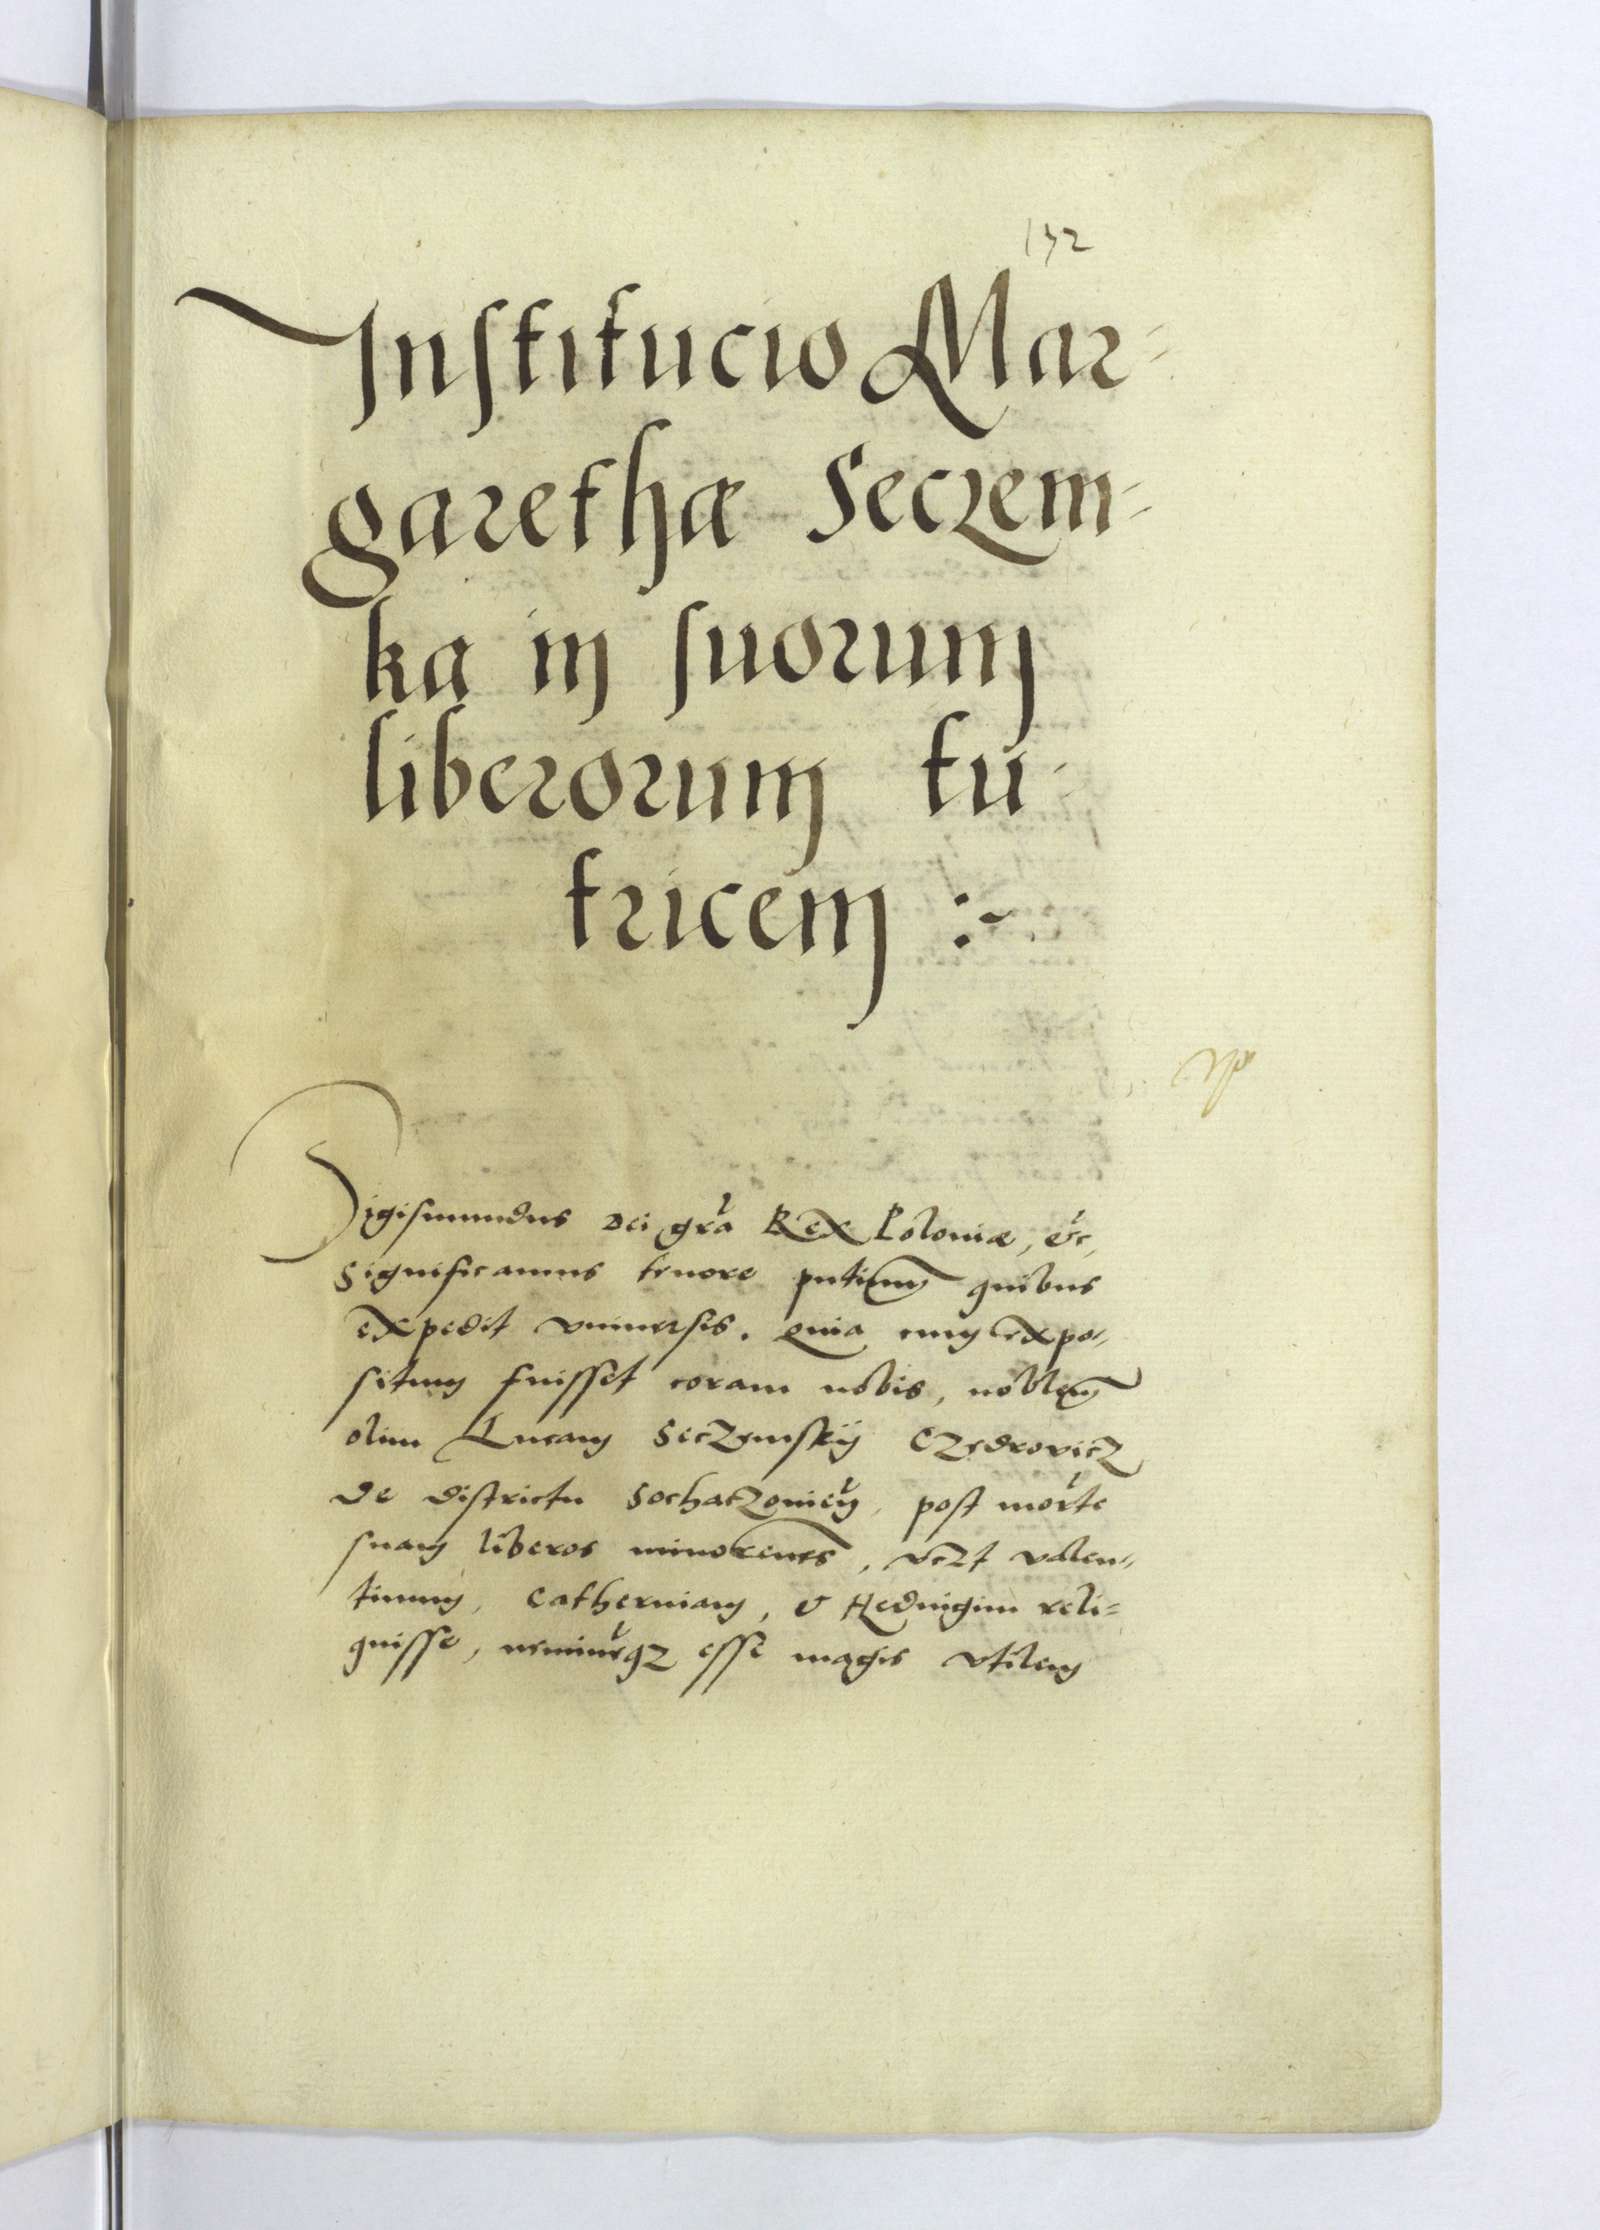 Institucio Mar-
garethæ Seczem-
ka in suorum
liberorum tu-
tricem :~
Sigismundus Dei gra Rex Poloniæ, etc,
Significamus tenore pntium quibus
expedit vniuersis. Quia cum expo-
situm fuisset coram nobis, noblem
olim Lucam Seczemskÿ Czedrovicz
de districtu Sochaczouien, post morte
suam liberos minorennes, vczt valen-
tinum, Catherinam, & Heduigim reli=
quisse, neminesqz esse magis vtilem